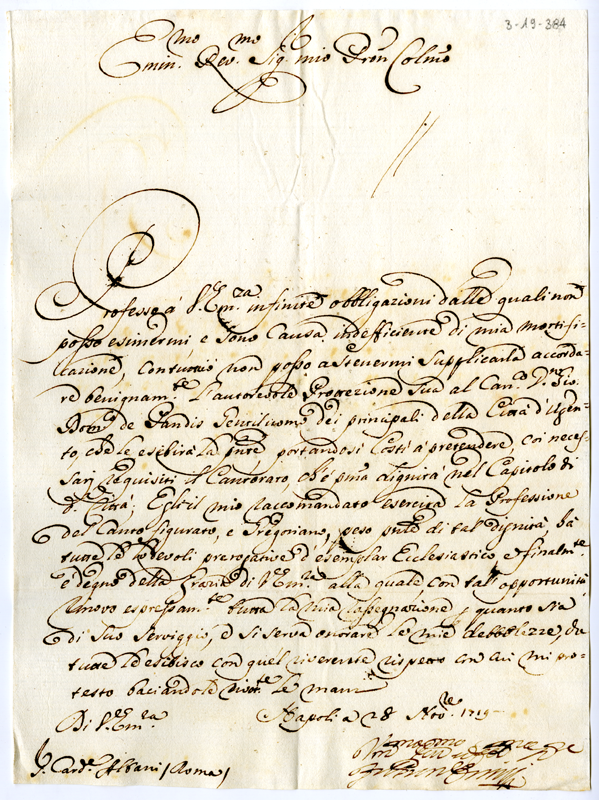 3-19-384
Emin.mo Rev.mo Sig.r mio Pron Colmo
Professo à V. Em.za infinite obbligazioni dalle quali non
posso esimermi, e sono causa indefficiente di mia mortifi-
cazione, contuttociò non posso astenermi supplicarla accorda-
re benignam.te l'autorevole Protezione sua al Can.co D. Gio.
de Gentiluomo dei principali della Città d'
to, che le esibirà la pnte portandosi costì à pretendere, coi neces-
sarj requisiti il Cantorato, ch'è prima dignità nel Capitolo di
d.a Città; Egli il mio raccomandato esercita la Professione
del Canto figurato, e Gregoriano, peso pnte di tal dignità, hà
tutte le prerogative d'esemplar Ecclesiastico, e finalm.te
è degno della grazia di V. Em.za alla quale con tal opportunità
rinovo espressam.te tutta la mia rassegnazione quanto sia
di suo serviggio, e si serva onorare le mie debbolezze, che
tutte l'esibisco con quel riverente rispetto con cui mi pro-
testo baciandole le mani
Di V. Em.za Napoli a 28 Nov.re 1719
S. Card.e Albani (Roma)